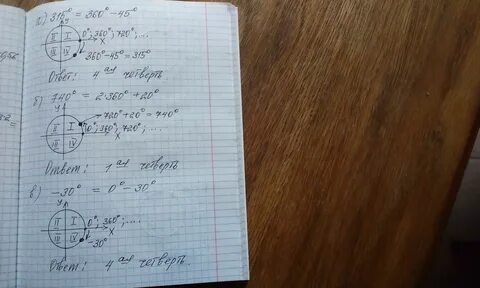 а) 315° = 360° − 45°
y
II I
III IV
0°, 360°, 720°, ...
x
360° − 45° = 315°
Ответ: 4 ая четверть
б) 740° = 2·360° + 20°
y
720° + 20° = 740°
II I
III IV
0°, 360°, 720°, ...
x
Ответ: 1 ая четверть
в) −30° = 0° − 30°
y
II I
III IV
0°, 360°, ....
x
−30°
Ответ: 4 ая четверть